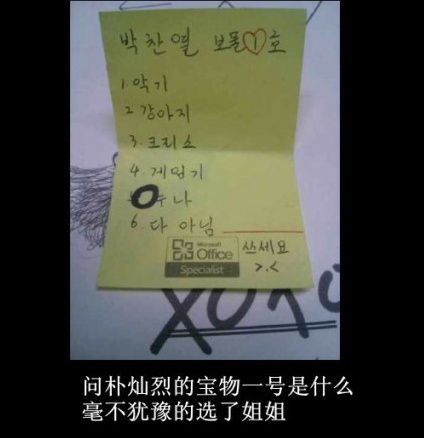 박찬열 보물 1호
1. 악기
2. 강아지
3. 크리스
4. 게임기
5. 누나
6. 다 아님
쓰세요
>.<
Microsoft
Office
Specialist
XOXO
问朴灿烈的宝物一号是什么
毫不犹豫的选了姐姐